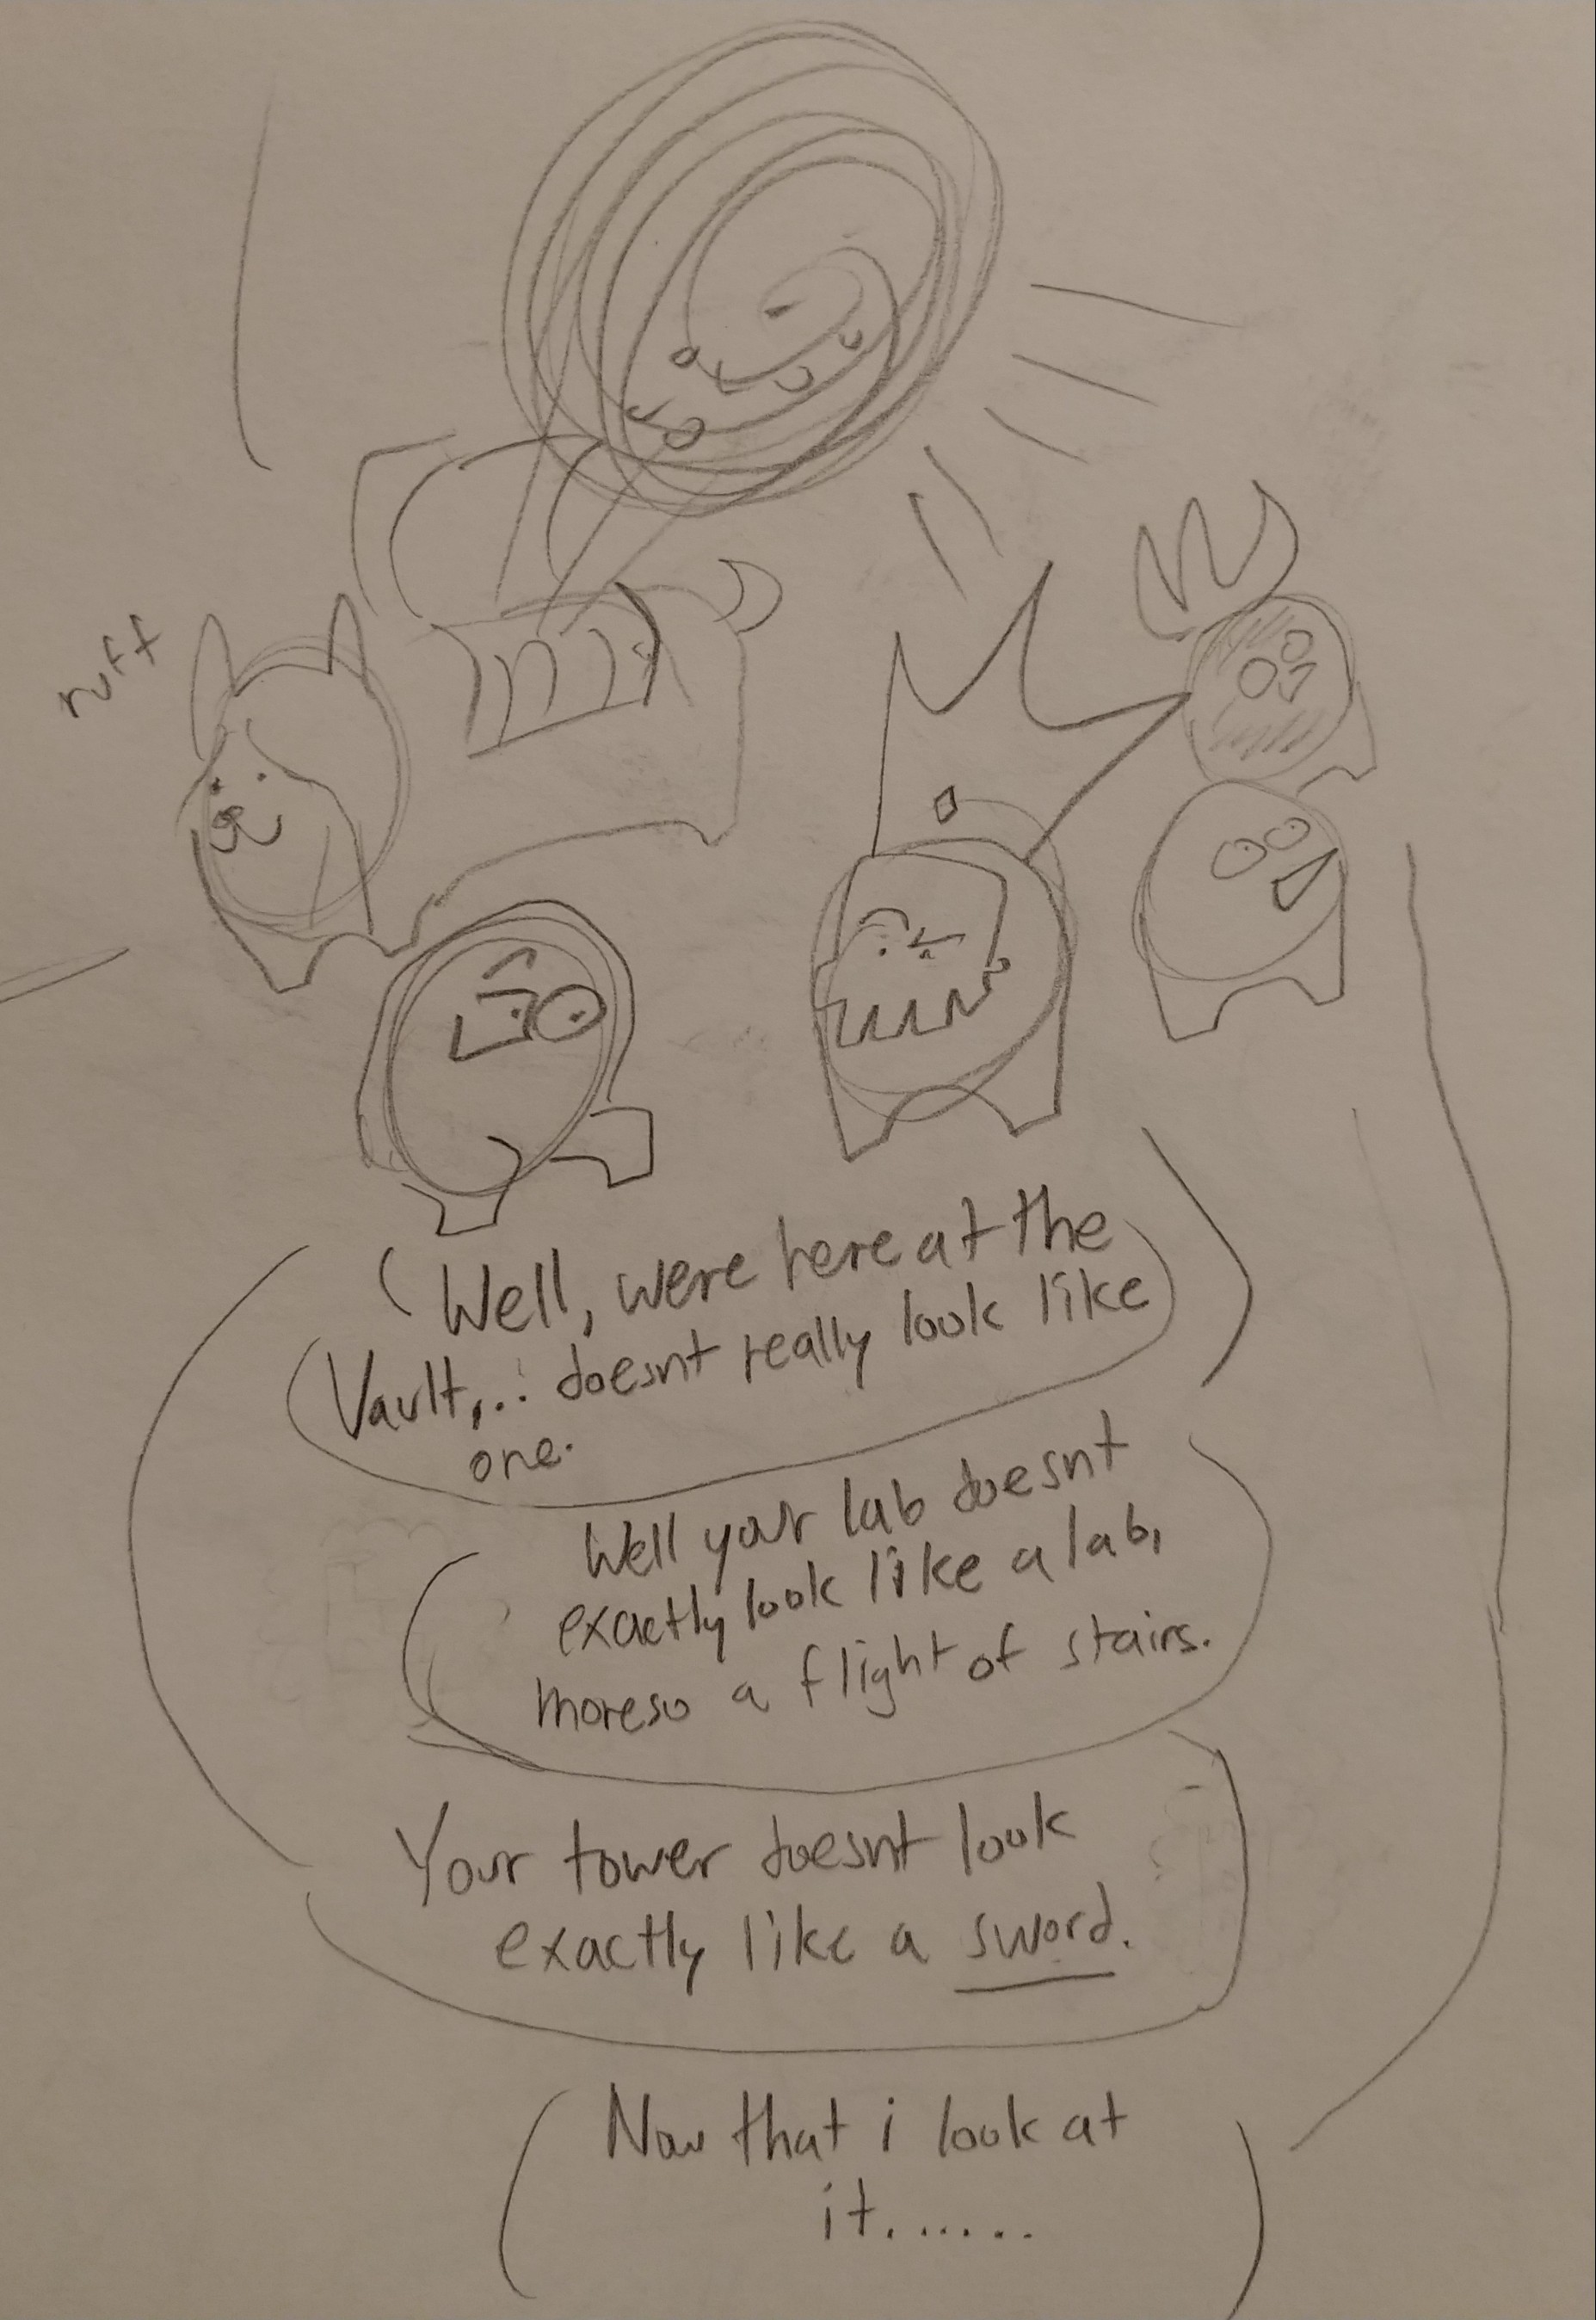 ruff
Well, were here at the
Vault,... doesnt really look like
one.
Well your lab doesnt
exactly look like a lab,
moreso a flight of stairs.
Your tower doesnt look
exactly like a sword.
Now that i look at
it.......